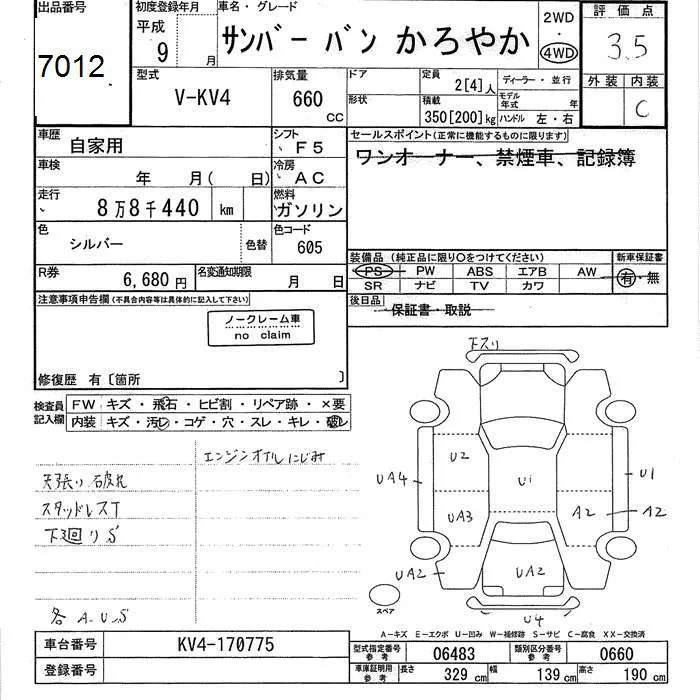 出品番号
7012
初度登録年月
平成
9 月
車名・グレード
サンバー バン かろやか
2WD
・
4WD
評価点
3.5
外装 内装
C
型式
V-KV4
排気量
660 CC
ドア
形状
定員
2[4]人
積載
350[200]kg
ディーラー・並行
モデル年式 年
ハンドル 左・右
車歴
自家用
シフト
F5
車検
年 月( 日)
冷房
AC
走行
8万8千440 km
燃料
ガソリン
色
シルバー
色替
色コード
605
R券
6,680円
名変通知期限
月 日
セールスポイント(正常に機能するものに限ります)
ワンオーナー、禁煙車、記録簿
装備品(純正品に限り○をつけてください)
PS PW ABS エアB AW
SR ナビ TV カワ
新車保証書
有・無
後日品
保証書・取説
注意事項申告欄(不具合内容等は具体的に記入して下さい)
ノークレーム車
no claim
修復歴 有〔箇所 〕
検査員記入欄
FW キズ・飛石・ヒビ割・リペア跡・×要
内装 キズ・汚レ・コゲ・穴・スレ・キレ・破レ
エンジンオイルにじみ
天張り破れ
スタッドレスT
下回りS
各A.U.S
下スリ
U2
UA4
U1
U1
UA3
A2
A2
UA2
UA2
U4
スペア
A-キズ E-エクボ U-凹み W-補修跡 S-サビ C-腐食 XX-交換済
車台番号
KV4-170775
登録番号
型式指定番号
参考
06483
類別区分番号
参考
0660
車庫証明用
参考
長さ
329 cm
幅
139 cm
高さ
190 cm